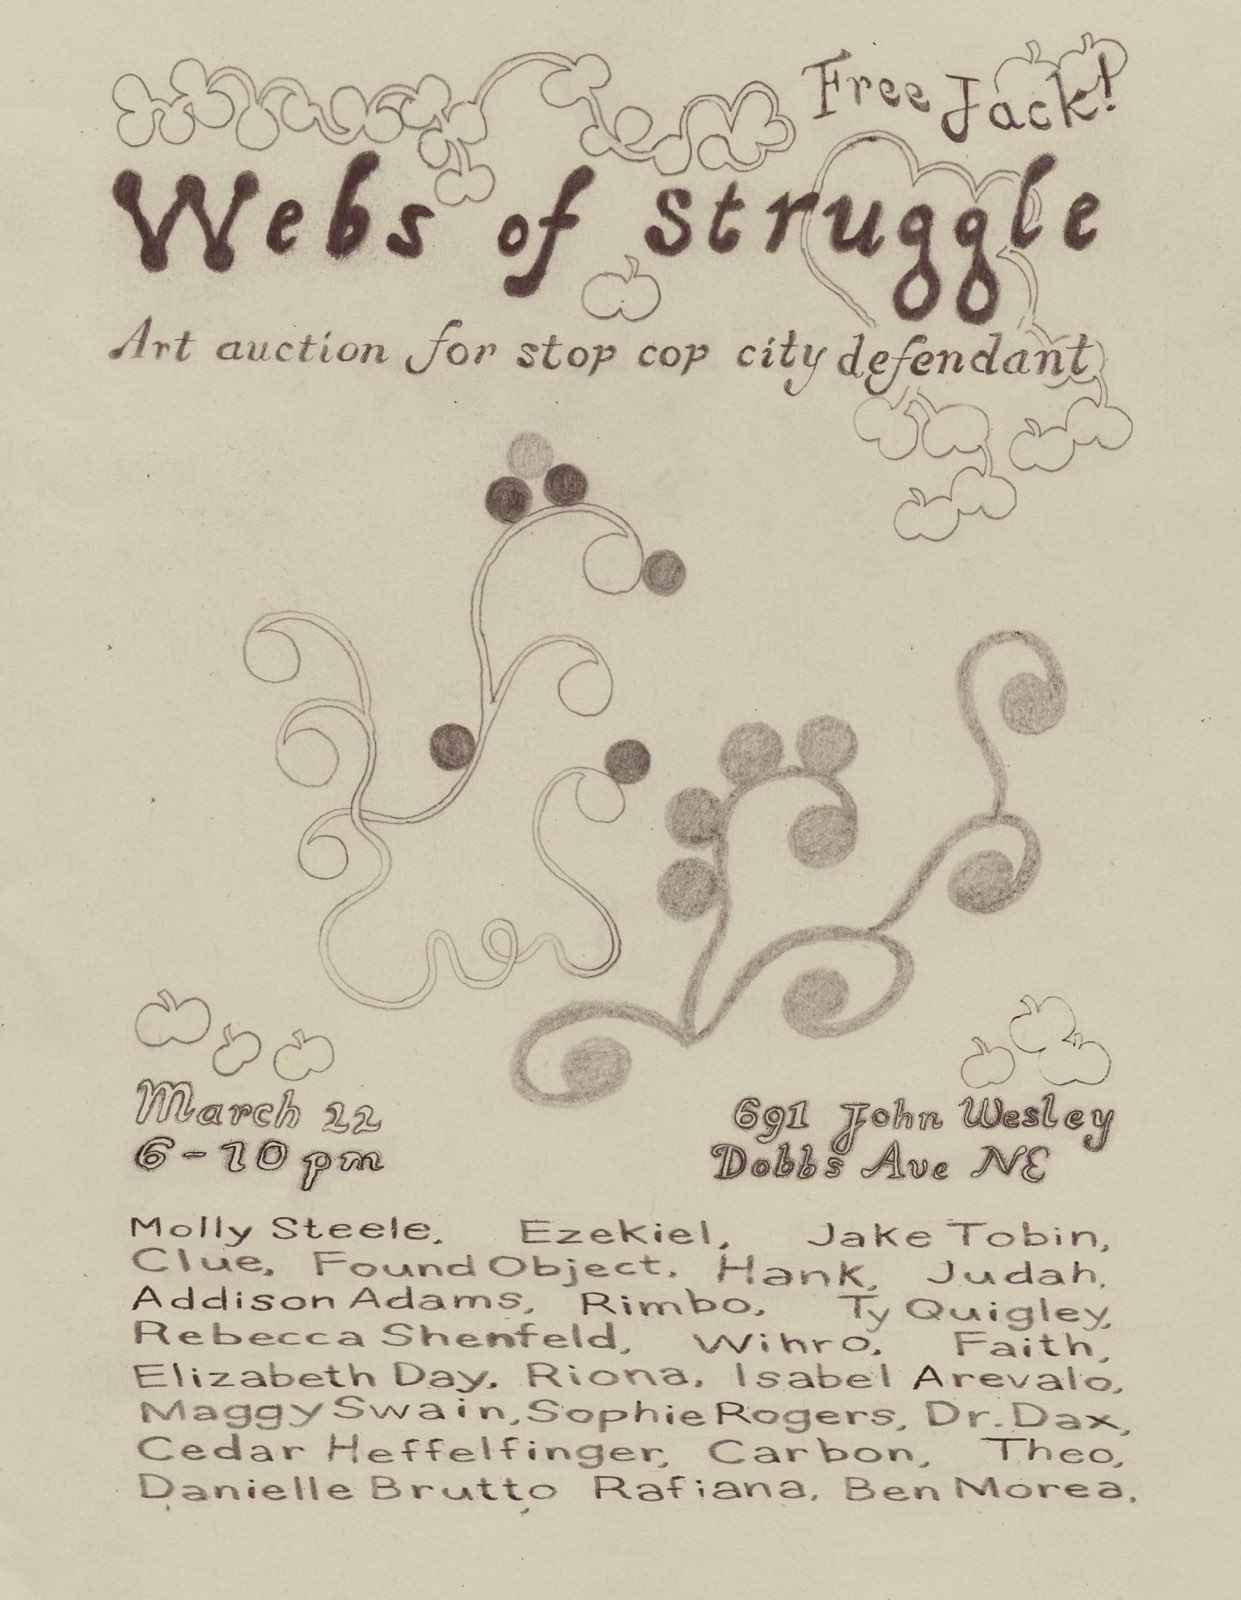 Free Jack!
Webs of struggle
Art auction for stop cop city defendant
March 22
6-10 pm
691 John Wesley
Dobbs Ave NE
Molly Steele, Ezekiel, Jake Tobin,
Clue, Found Object, Hank, Judah,
Addison Adams, Rimbo, Ty Quigley,
Rebecca Shenfeld, Wihro, Faith,
Elizabeth Day, Riona, Isabel Arevalo,
Maggy Swain, Sophie Rogers, Dr. Dax,
Cedar Heffelfinger, Carbon, Theo,
Danielle Brutto, Rafiana, Ben Morea,